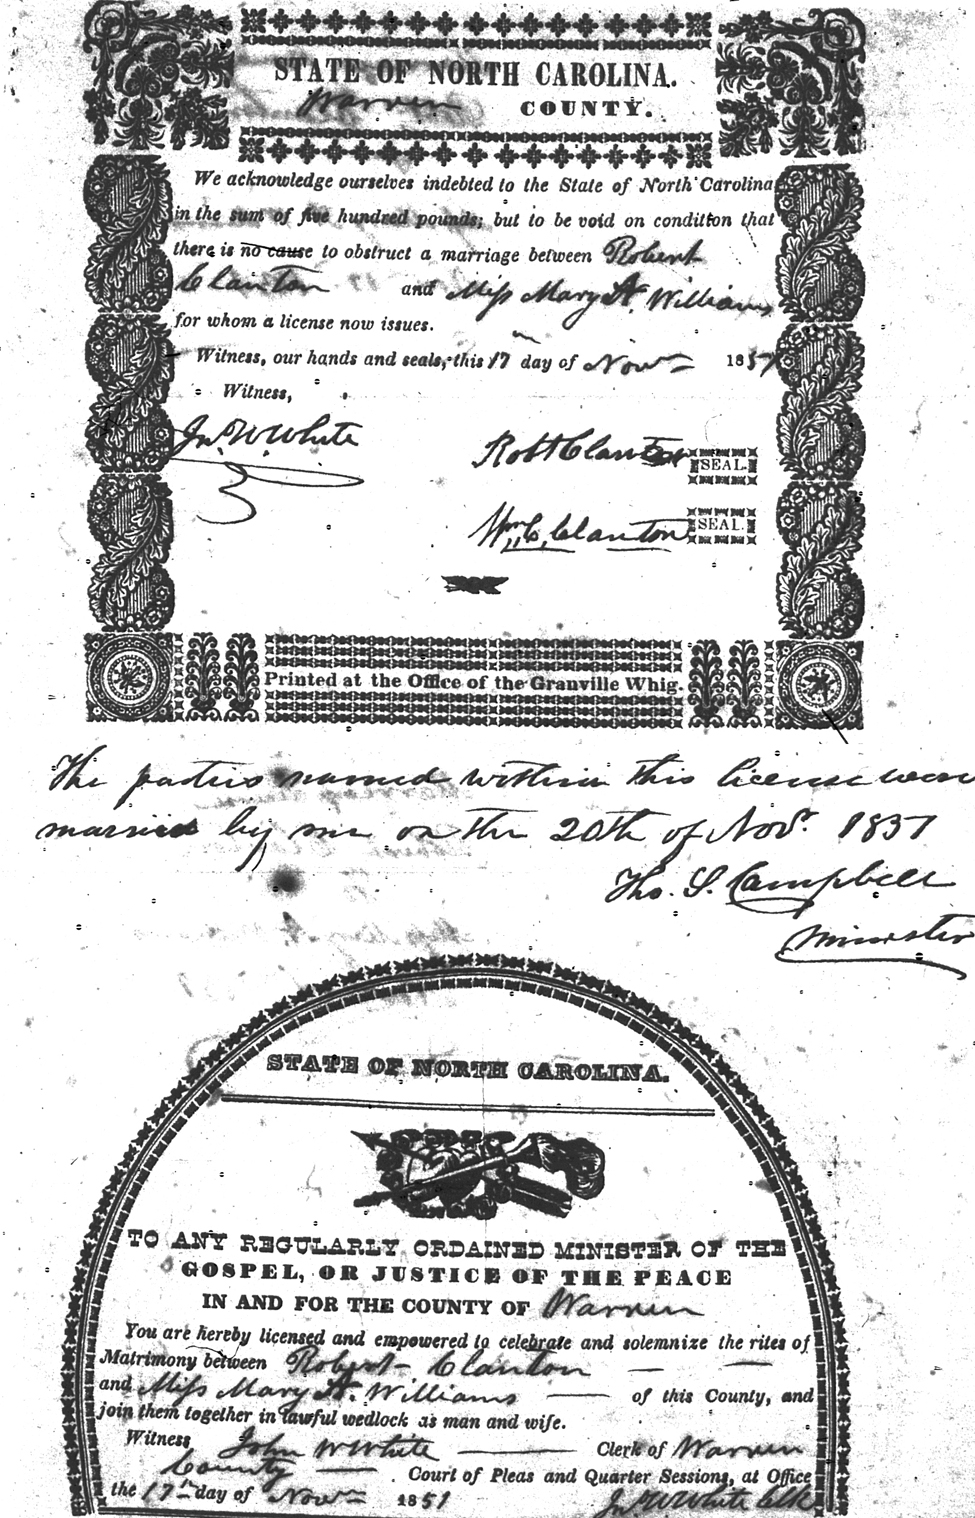 STATE OF NORTH CAROLINA.
Warren COUNTY.
We acknowledge ourselves indebted to the State of North Carolina
in the sum of five hundred pounds; but to be void on condition that
there is no cause to obstruct a marriage between Robert
Clanton and Miss Mary A. Williams
for whom a license now issues.
Witness, our hands and seals, this 17 day of Nov 1851
Witness,
Jno. W. White
Robt Clanton SEAL.
Wm. C. Clanton SEAL.
Printed at the Office of the Granville Whig.
The parties named within this license were
married by me on the 20th of Nov. 1851
Tho. S. Campbell
Minister
STATE OF NORTH CAROLINA.
TO ANY REGULARLY ORDAINED MINISTER OF THE
GOSPEL, OR JUSTICE OF THE PEACE
IN AND FOR THE COUNTY OF Warren
You are hereby licensed and empowered to celebrate and solemnize the rites of
Matrimony between Robert Clanton
and Miss Mary A. Williams of this County, and
join them together in lawful wedlock as man and wife.
Witness John W White Clerk of Warren
County Court of Pleas and Quarter Sessions, at Office
the 17th day of Nov 1851
Jno. W White Clk